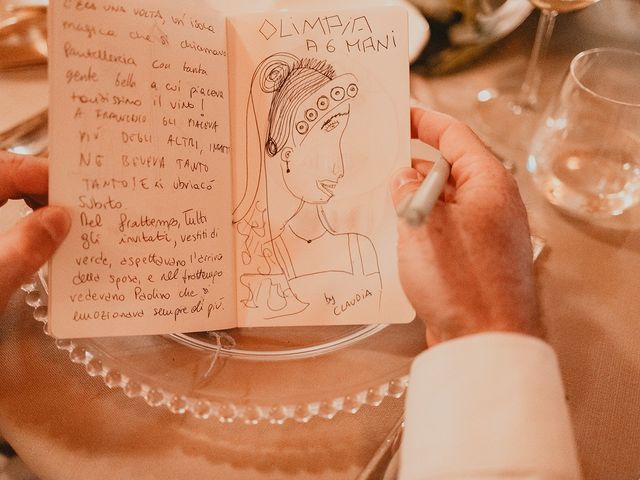 C'ERA UNA VOLTA, un'isola
magica che si chiamava
Pantelleria con tanta
gente bella a cui piaceva
tantissimo il vino!
A FRANCESCO GLI PIACEVA
PIÙ DEGLI ALTRI, INFATTI
NE BEVEVA TANTO
TANTO! E si ubriacò
Subito.
Nel frattempo, Tutti
gli invitati, vestiti di
verde, aspettavano l'arrivo
della sposa, e nel frattempo
vedevano Paolino che si
emozionava sempre di più.
OLIMPIA
A 6 MANI
by
CLAUDIA